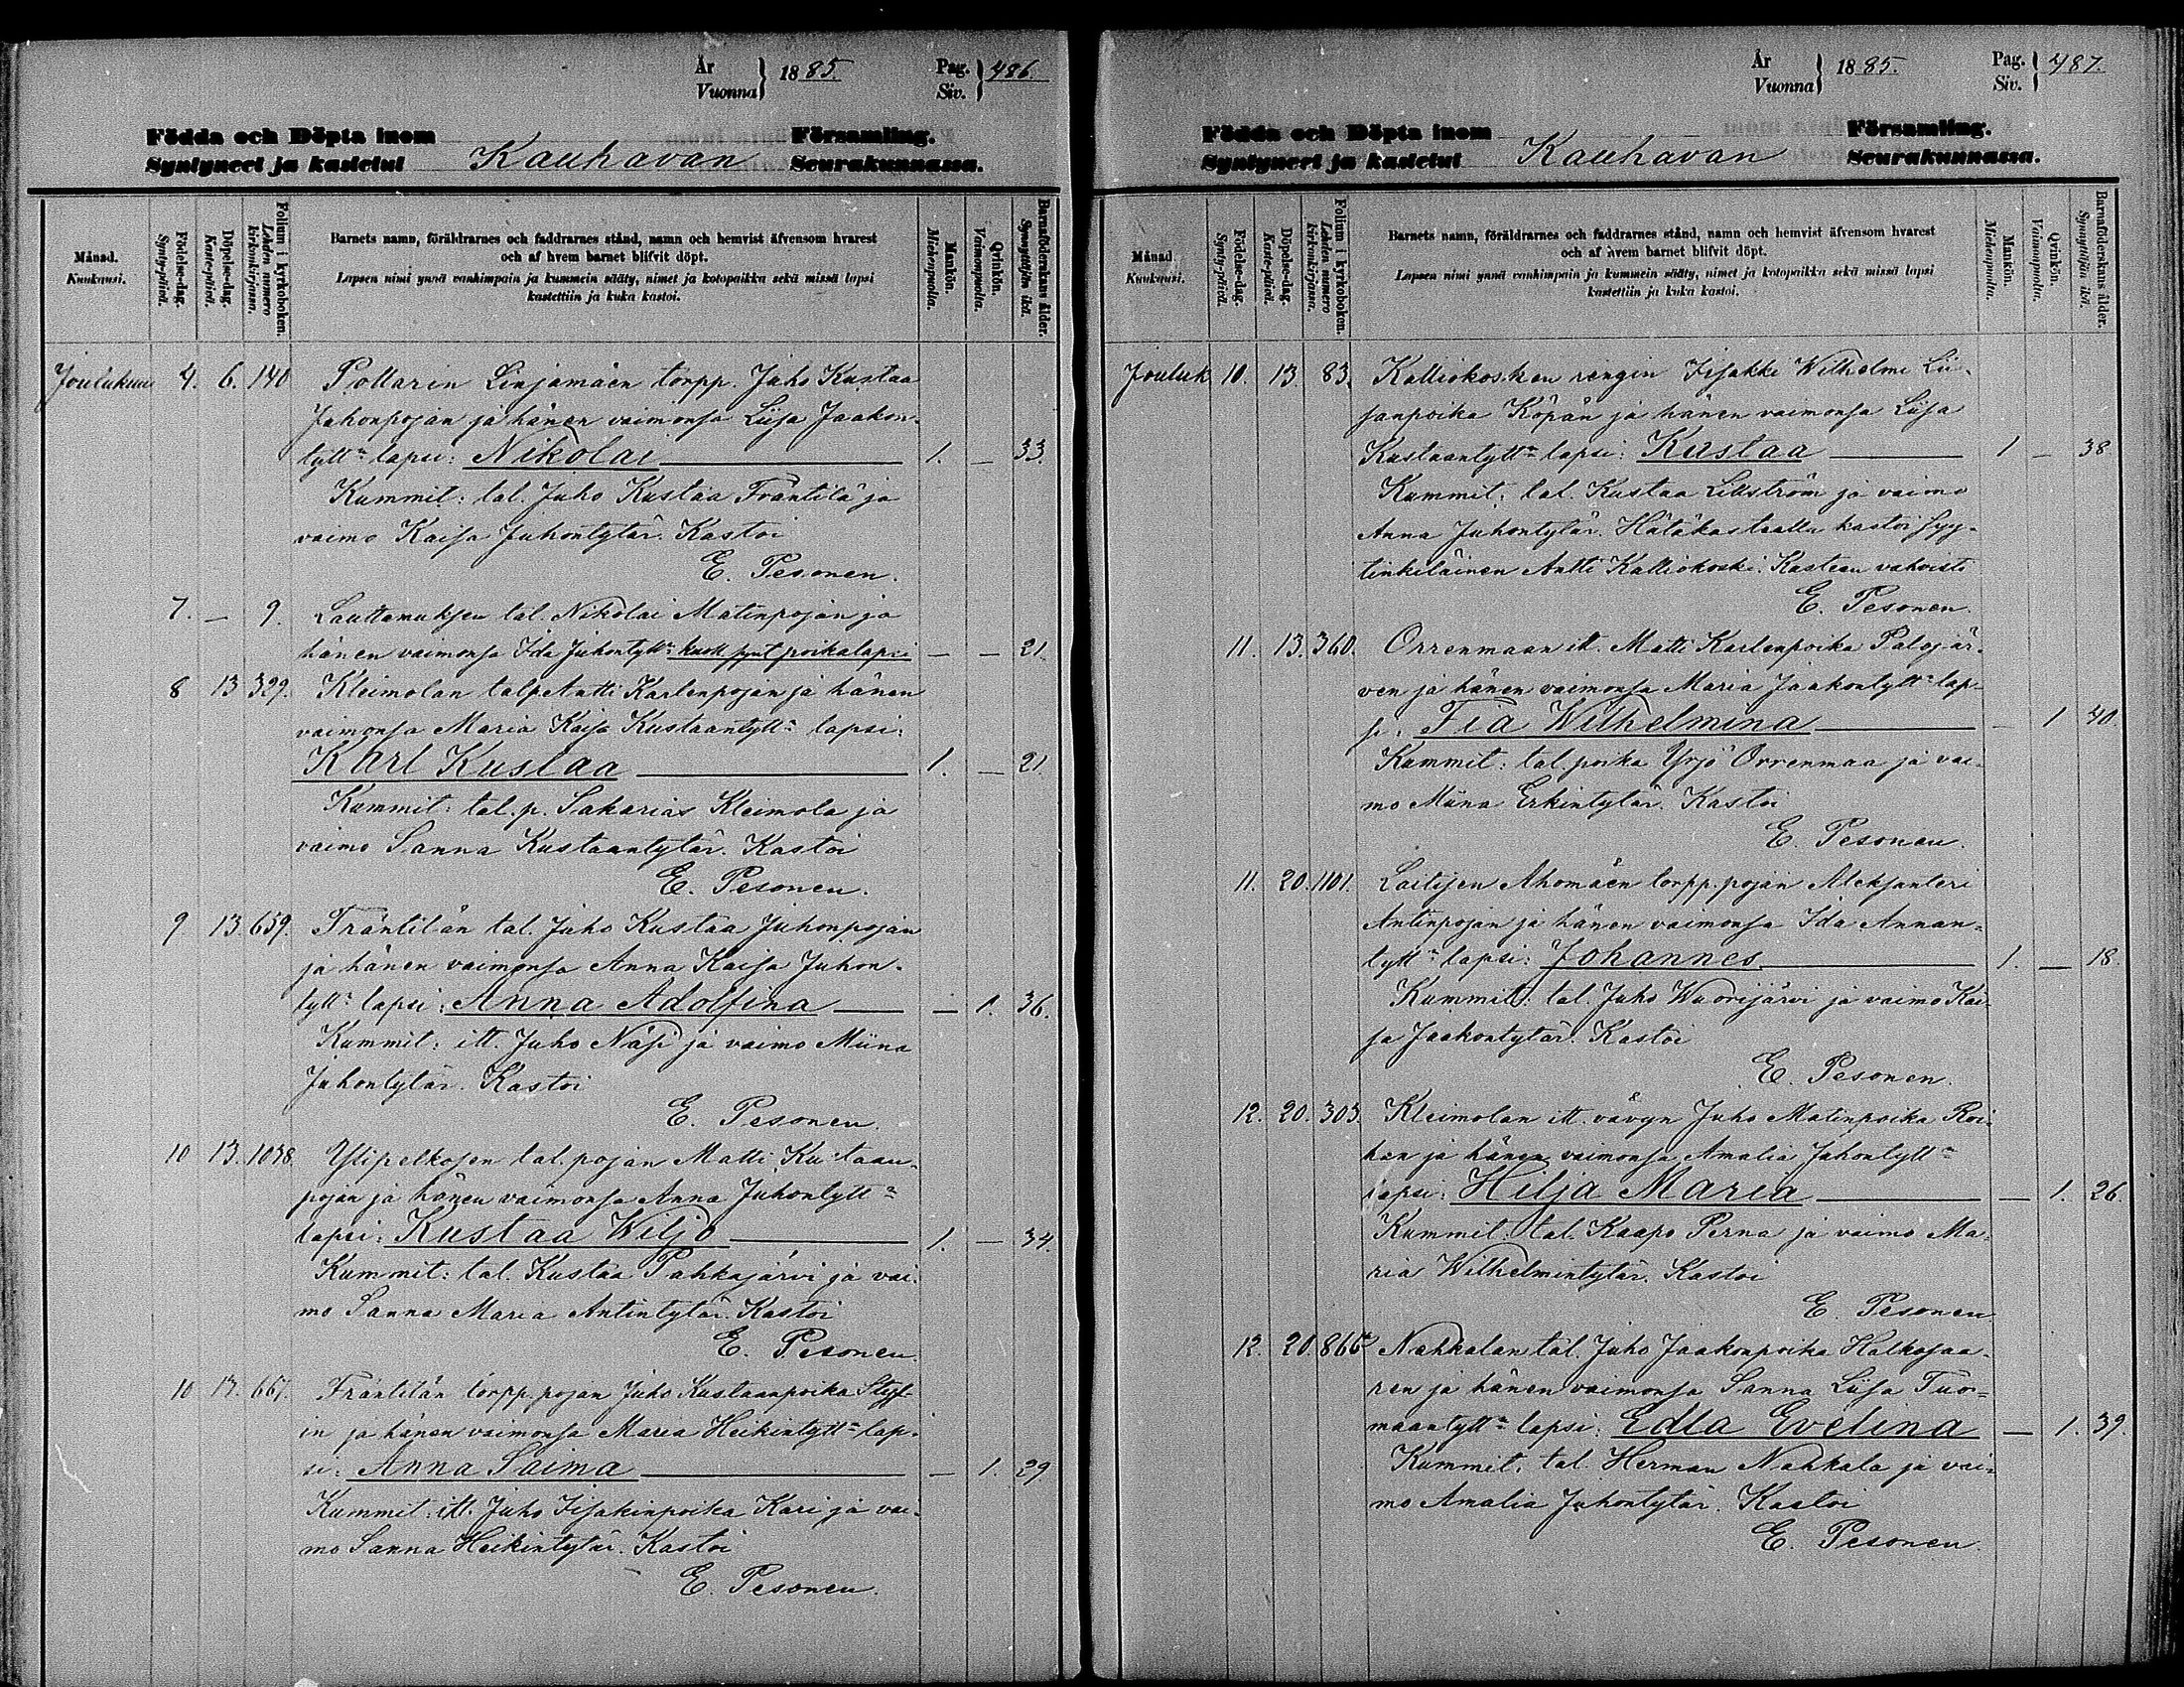 År
Vuonna } 1885. Pag.
Siv. } 486
Födda och Döpta inom Församling.
Syntyneet ja kastetut Kauhavan Seurakunnassa.
Månad.
Kuukausi.
Födelse-dag.
Synty-päivä.
Döpelse-dag.
Kaste-päivä.
Folium i kyrkoboken.
Lehden numero kirkonkirjassa.
Barnets namn, föräldrarnes och faddrarnes stånd, namn och hemvist äfvensom hvarest
och af hvem barnet blifvit döpt.
Lapsen nimi ynnä vanhimpain ja kummein sääty, nimet ja kotopaikka sekä missä lapsi
kastettiin ja kuka kastoi.
Mankön.
Miehenpuolta.
Qvinkön.
Vaimonpuolta.
Barnaföderskans ålder.
Synnyttäjän ikä.
Joulukuu 4. 6. 140 Pollarin Linjamäen torpp. Juho Kustaa
Juhonpojan ja hänen vaimonsa Liisa Jaakon-
tytt:n lapsi: Nikolai 1. — 33.
Kummit: tal. Juho Kustaa Fräntilä ja
vaimo Kaisa Juhontytär. Kastoi
E. Pesonen.
7. — 9. Lauttamuksen tal. Nikolai Matinpojan ja
hänen vaimonsa Ida Juhontytt:n kuoll. synt. poikalapsi — — 21.
8 13 329. Kleimolan talp. Antti Karlenpojan ja hänen
vaimonsa Maria Kaisa Kustaantytt:n lapsi:
Karl Kustaa 1. — 21.
Kummit: tal. p. Sakarias Kleimola ja
vaimo Sanna Kustaantytär. Kastoi
E. Pesonen.
9 13. 659. Fräntilän tal. Juho Kustaa Juhonpojan
ja hänen vaimonsa Anna Kaisa Juhon-
tytt:n lapsi: Anna Adolfina — 1. 36.
Kummit: itt. Juho Näsi ja vaimo Miina
Juhontytär. Kastoi
E. Pesonen.
10 13. 1038. Ylipelkosen tal. pojan Matti Kustaan-
pojan ja hänen vaimonsa Anna Juhontytt:n
lapsi: Kustaa Wiljo 1. — 34.
Kummit: tal. Kustaa Pahkajärvi ja vai-
mo Sanna Maria Antintytär. Kastoi
E. Pesonen.
10 13. 667. Fräntilän torpp. pojan Juho Kustaanpoika
in ja hänen vaimonsa Maria Heikintytt:n lap-
si: Anna Saima — 1. 29
Kummit: itt. Juho Iisakinpoika Kari ja vai-
mo Sanna Heikintytär. Kastoi
E. Pesonen.
År
Vuonna } 1885. Pag.
Siv. } 487.
Födda och Döpta inom Församling.
Syntyneet ja kastetut Kauhavan Seurakunnassa.
Månad
Kuukausi.
Födelse-dag.
Synty-päivä.
Döpelse-dag.
Kaste-päivä.
Folium i kyrkoboken.
Lehden numero kirkonkirjassa.
Barnets namn, föräldrarnes och faddrarnes stånd, namn och hemvist äfvensom hvarest
och af hvem barnet blifvit döpt.
Lapsen nimi ynnä vanhimpain ja kummein sääty, nimet ja kotopaikka sekä missä lapsi
kastettiin ja kuka kastoi.
Mankön.
Miehenpuolta.
Qvinkön.
Vaimonpuolta.
Barnaföderskans ålder.
Synnyttäjän ikä.
Jouluk 10. 13. 83. Kalliokosken rengin Iisakki Wilhelmi Lii-
sanpoika Köpän ja hänen vaimonsa Liisa
Kustaantytt:n lapsi: Kustaa 1 — 38
Kummit: tal. Kustaa Lillström ja vaimo
Anna Juhontytär. Hätäkasteella kastoi syy-
tinkiläinen Antti Kalliokoski. Kasteen vahvisti
E. Pesonen.
11. 13. 360. Orrenmaan itt. Matti Karlenpoika Palojär-
ven ja hänen vaimonsa Maria Jaakontytt:n lap-
si: Fia Wilhelmina — 1 40.
Kummit: tal. poika Yrjö Orrenmaa ja vai-
mo Miina Erkintytär. Kastoi
E. Pesonen.
11. 20. 1101. Laitisen Ahomäen torpp. pojan Aleksanteri
Antinpojan ja hänen vaimonsa Ida Annan-
tytt:n lapsi: Johannes 1. — 18.
Kummit: tal. Juho Wuorijärvi ja vaimo Kai-
sa Jaakontytär. Kastoi
E. Pesonen.
12. 20. 303. Kleimolan itt. vävyn Juho Matinpoika Roi-
han ja hänen vaimonsa Amalia Juhontytt:n
lapsi: Hilja Maria — 1. 26.
Kummit: tal. Kaapo Perna ja vaimo Ma-
ria Wilhelmintytär. Kastoi
E. Pesonen
12. 20. 866 Nahkalan tal. Juho Jaakonpoika Halkosaa-
ren ja hänen vaimonsa Sanna Liisa Tuo-
maantytt:n lapsi: Edla Evelina — 1. 39.
Kummit: tal. Herman Nahkala ja vai-
mo Amalia Juhontytär. Kastoi
E. Pesonen.